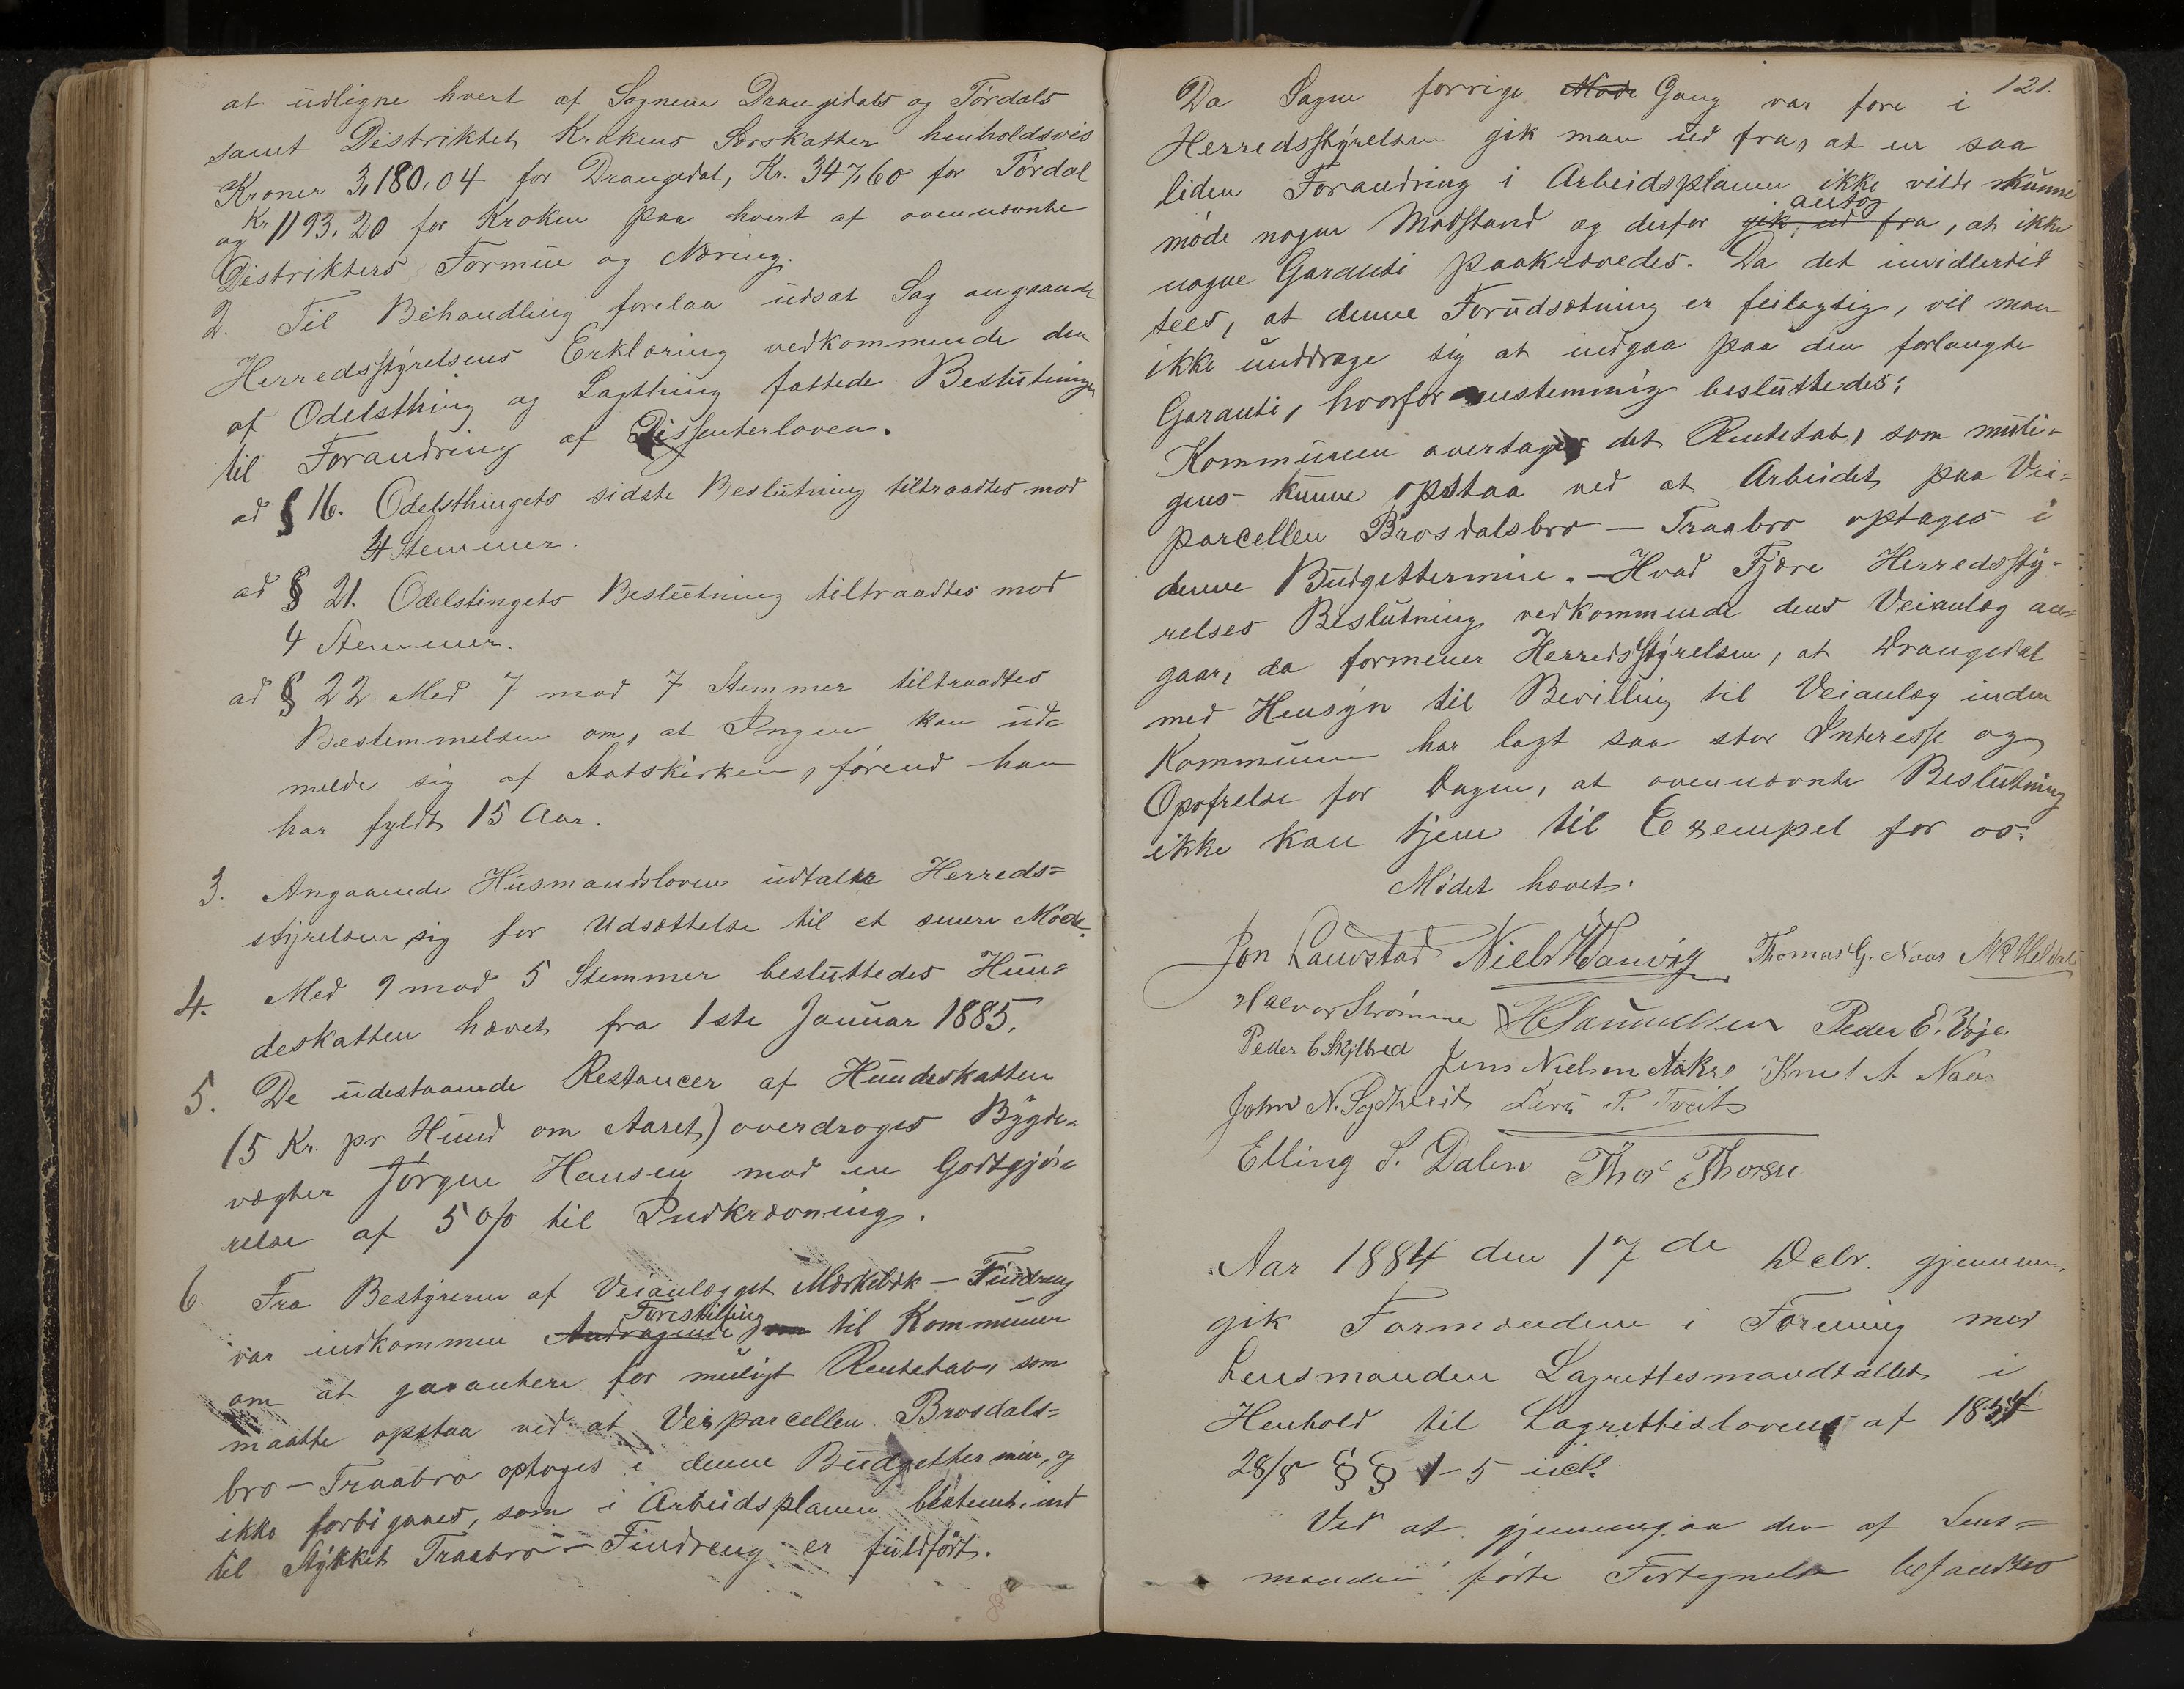 at udligne hvert af Sognene Drangedals og Tórdals
samt Distriktet Krokens Særskatter henholdsvis
Kroner 3,180.04 for Drangedal, Kr. 347,60 for Tórdal
og Kr. 1193.20 for Kroken paa hvert af ovennævnte
Distrikters Formue og Næring.
2. Til Behandling forelaa udsat Sag angaaende
Herredsstyrelsens Erklæring vedkommende den
af Odelsthing og Lagthing fattede Beslutninger
til Forandring af Dissenterloven.
ad § 16. Odelsthingets sidste Beslutning tiltraadtes mod
4 Stemmer.
ad § 21. Odelstingets Beslutning tiltraadtes mod
4 Stemmer.
ad § 22. Med 7 mod 7 Stemmer tiltraadtes
Bestemmelsen om, at Ingen kan ud-
melde sig af Statskirken, fórend han
har fyldt 15 Aar.
3. Angaaende Husmandsloven udtalte Herreds=
styrelsen sig for Udsættelse til et senere Móde.
4. Med 9 mod 5 Stemmer besluttedes Hun=
deskatten hævet fra 1ste Januar 1885.
5. De udestaaende Restancer af Hundeskatten
(5 Kr. pr Hund om Aaret) overdroges Bygde-
vægter Jórgen Hansen mod en Godtgjó-
relse af 5 % til Indkrævning.
6. Fra Bestyreren af Veianlægget Mærkebæk – Findreng
var indkommen Andragende Forestilling om til Kommunen
om at garantere for muligt Rentetab, som
maatte opstaa ved at Veiparcellen Brosdals=
bro – Traabro optoges i denne Budgettermin, og
ikke forbigaaes, som i Arbeidsplanen bestemt, ind
til Stykket Traabro – Findreng er fuldfórt.
121.
Da Sagen forrige Móde Gang var fore i
Herredsstyrelsen gik man ud fra, at en saa
liden Forandring i Arbeidsplanen ikke vilde kunne
móde nogen Modstand og derfor gik ud fra antog, at ikke
nogen Garanti paakrævedes. Da det imidlertid
sees, at denne Forudsætning er feilagtig, vil man
ikke unddrage sig at indgaa paa den forlangte
Garanti, hvorfor enstemmig besluttedes:
Kommunen overtager det Rentetab, som muli-
gens kunne opstaa ved at Arbeidet paa Vei=
parcellen Brosdalsbro – Traabro optages i
denne Budgettermin. – Hvad Fjære Herredssty-
relses Beslutning vedkommende dens Veianlæg an-
gaar, da formener Herredsstyrelsen, at Drangedal
med Hensyn til Bevilling til Veianlæg inden
Kommunen har lagt saa stor Interesse og
Opofrelse for Dagen, at ovennævnte Beslutning
ikke kan tjene til Exempel for os.
Módet hævet.
Jon Lauvstad Niels Wauvig Thomas G. Naas
Halvor Strómme H Samuelsen Peder E. Voje.
Peder C. Skjelbred Jens Nielsen Aakre Knut A. Naas
John N. Sydtveit Levi P. Tveit
Elling S. Dalen Thor Thorsen
Aar 1884 den 17de Debr. gjennem-
gik Formændene i Forening med
Lensmanden Lagrettesmandtallet i
Henhold til Lagretteslovens af 1854
28/8 §§ 1-5 incl.
Ved at gjennemgaa den af Lens=
manden fórte Fortegnelse befandtes